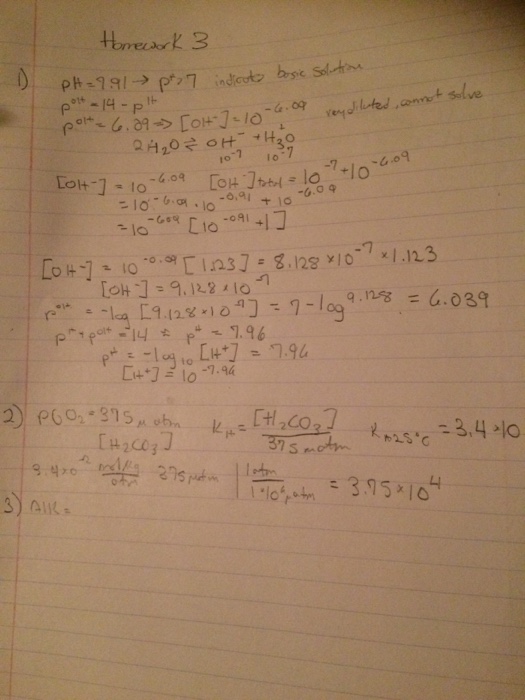 Homework 3
1) pH = 7.91 → pH>7 indicates basic solution
pOH = 14 - pH
pOH = 6.09 => [OH-] = 10^-6.09 very diluted, cannot solve
2H2O ⇌ OH- + H3O
10^-7 10^-7
[OH-] = 10^-6.09 [OH-]total = 10^-7 + 10^-6.09
= 10^-6.09 · 10^-0.91 + 10^-6.09
= 10^-6.09 [10^-0.91 + 1]
[OH-] = 10^-0.09 [1.123] = 8.128 × 10^-7 × 1.123
[OH-] = 9.128 × 10^-7
pOH = -log [9.128 × 10^-7] = 7 - log 9.128 = 6.039
pH + pOH = 14 pH = 7.96
pH = -log10 [H+] = 7.96
[H+] = 10^-7.96
2) PCO2 = 375 μ atm KH = [H2CO3] / 375 matm KH 25°C = 3.4 × 10
[H2CO3]
3.4×10^-2 mol/kg atm 375 μatm | 1 atm / 1×10^6 μatm = 3.75 × 10^4
3) Alk =